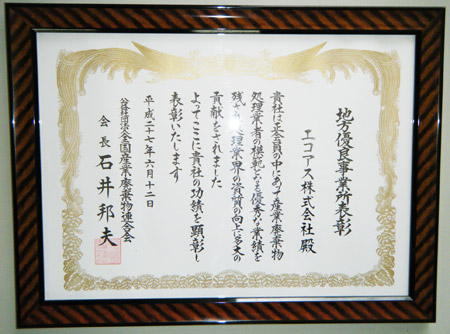 地方優良事業所表彰
エコアス株式会社殿
貴社は正会員の中にあって産業廃棄物
処理業者の模範となる優秀な業績を
残され処理業界の資質の向上に多大の
貢献をされました
よってここに貴社の功績を顕彰し
表彰いたします
平成二十七年六月十二日
公益社団法人全国産業廃棄物連合会
会長 石井邦夫